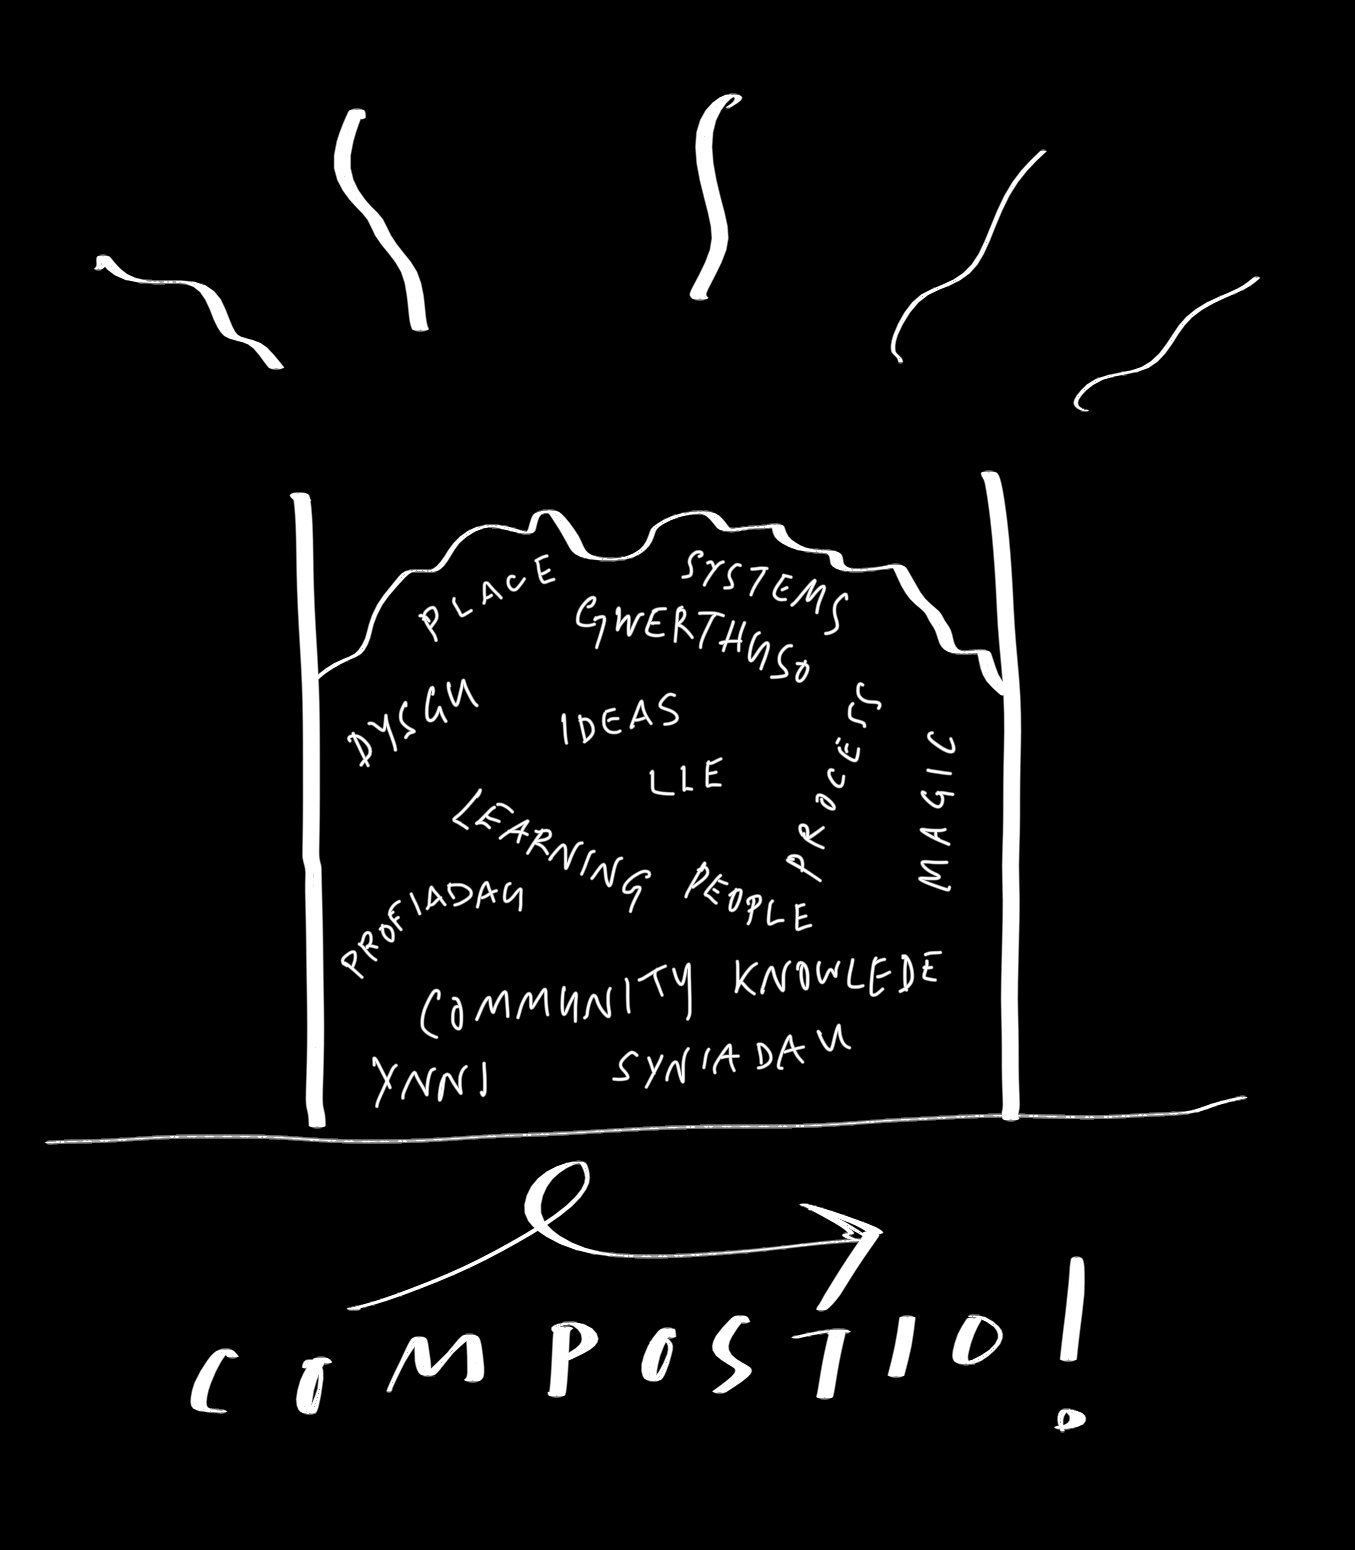 PLACE
SYSTEMS
GWERTHUSO
DYSGU
IDEAS
LLE
PROCESS
MAGIC
LEARNING
PEOPLE
PROFIADAU
COMMUNITY
KNOWLEDE
YNNI
SYNIADAU
COMPOSTIO!